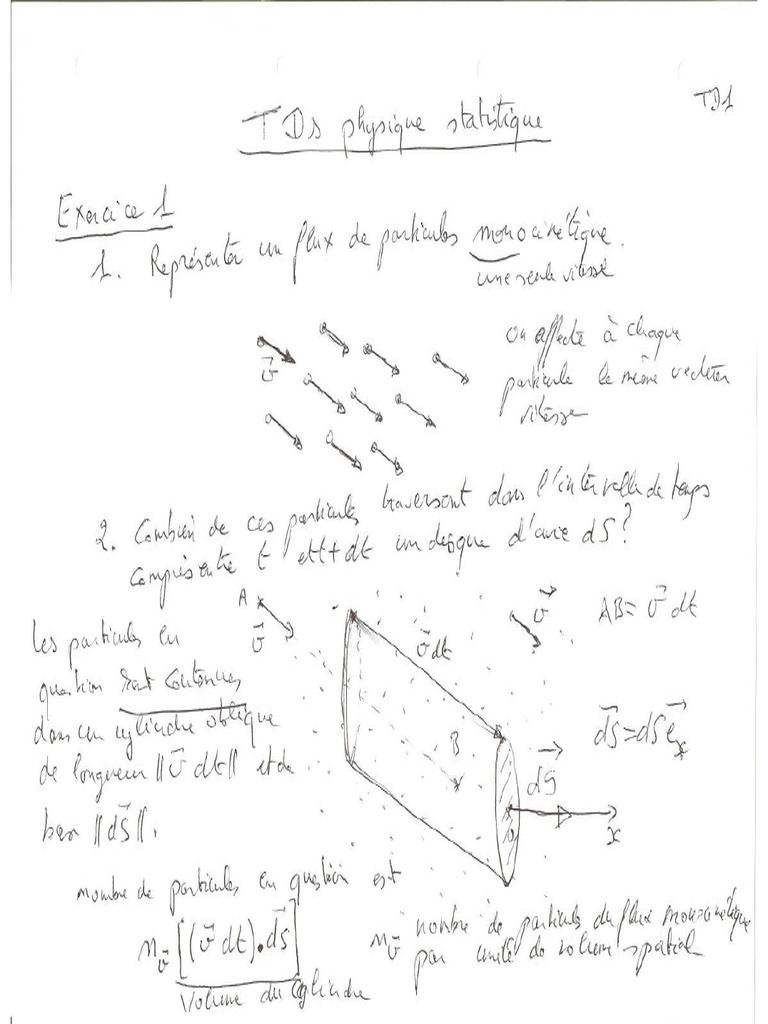 TD1
TDs physique statistique
Exercice 1
1. Représenter un flux de particules monocinétique.
une seule vitesse
on affecte à chaque
particule le même vecteur
vitesse
v⃗
2. Combien de ces particules traversent dans l'intervalle de temps
compris entre t et t+dt un disque d'aire dS?
A
v⃗
v⃗ dt
v⃗
AB = v⃗ dt
Les particules en
question sont contenues
dans un cylindre oblique
de longueur ||v⃗ dt|| et de
base ||dS⃗||.
B
dS⃗
dS⃗ = dS e⃗x
x
nombre de particules en question est
n_v⃗ [(v⃗ dt).dS⃗]
Volume du cylindre
n_v⃗ nombre de particules du flux monocinétique
par unité de volume spatial